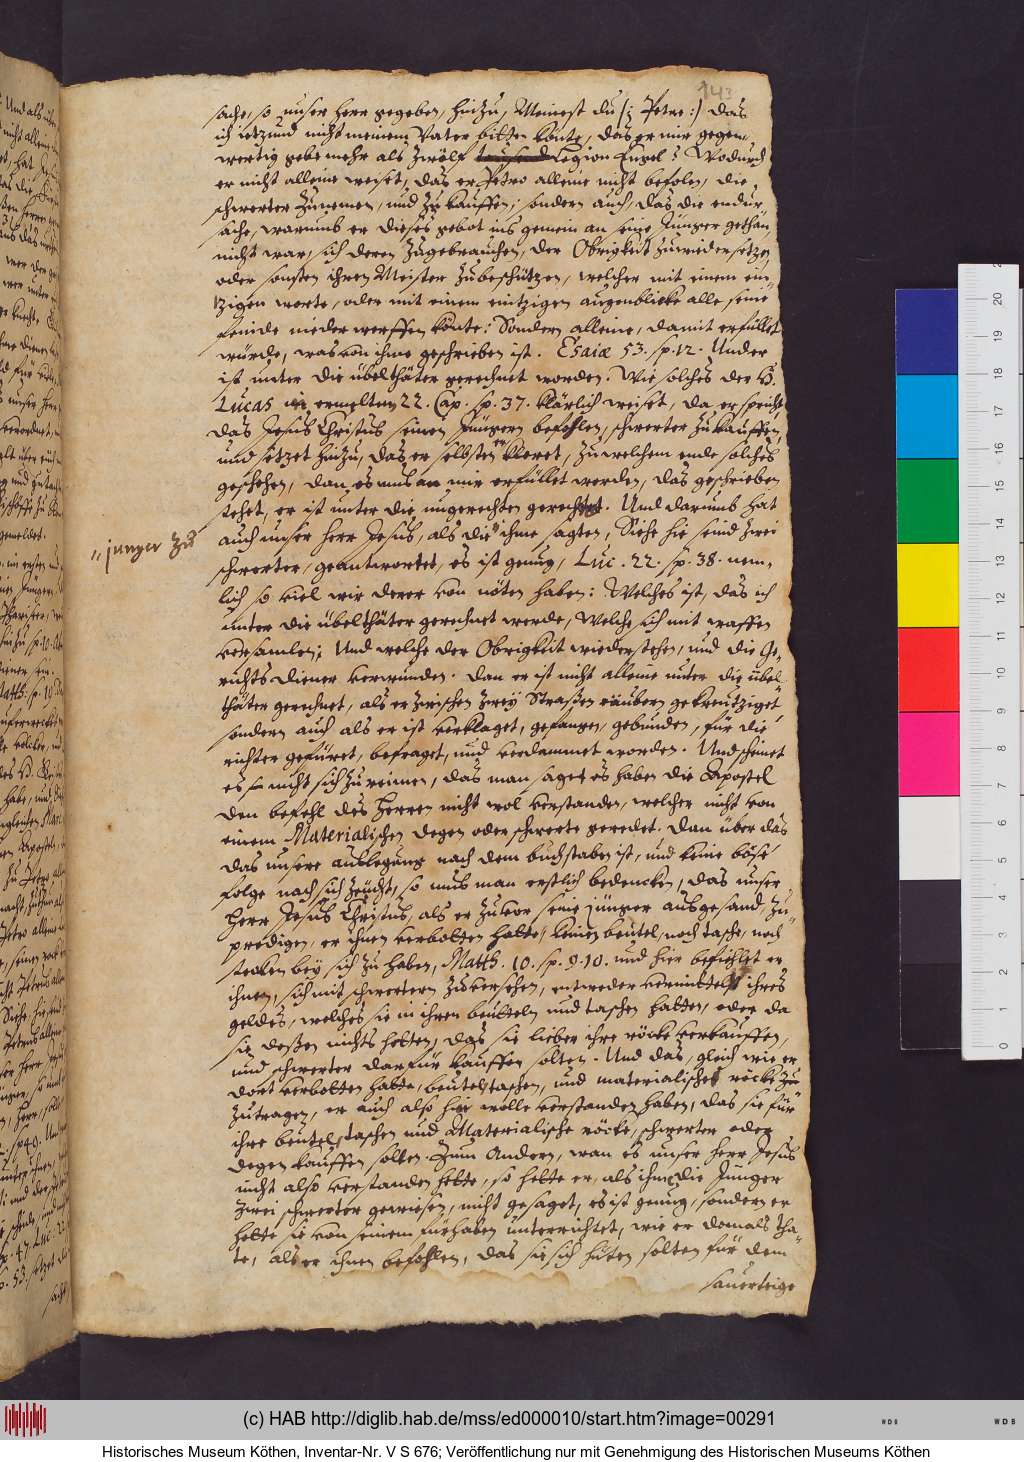 143
sache, so unser herr gegeben, hinzu, Meinest du (: Petre :) das
ich ietzund nicht meinem Vater bitten könte, das er mir gegen,
wertig gebe mehr als zwölf Legion Engel? Wodurch
er nicht alleine weiset, das er Petro alleine nicht befolen, die
schwerter zunemen, und zu kauffen; sondern auch, das die endur,
sache, warumb er dieses gebot ins gemein an seine Jünger gethan,
nicht war, sich deren zugebrauchen, der Obrigkeit zuwidersetzen,
oder sonsten ihren Meister zubeschützen, welcher mit einem ein,
tzigen worte, oder mit einem eintzigen augenblicke alle seine
feinde nieder werffen könte: Sondern alleine, damit erfüllet
würde, was von ihme geschrieben ist. Esaiæ 53. sp. 12. Und er
ist unter die übelthäter gerechnet worden. Wie solches der H.
Lucas in ermelten 22. Cap. sp. 37. klärlich weiset, da er spricht
das Jesus Christus seinen Jüngern befohlen, schwerter zukauffen,
und setzet hinzu, das er selbsten erkleret, zu welchem ende solches
geschehen, dan es mus an mir erfüllet werden, das geschrieben
stehet, er ist unter die ungerechten gerechnet. Und darumb hat
auch unser herr Jesus, als die ihme sagten, Siehe hie seind zwei
" jünger zu
schwerter, geantwortet, es ist genug, Luc. 22. sp. 38. nem,
lich so viel wir derer von nöten haben: Welches ist, das ich
unter die übelthäter gerechnet werde, Welche sich mit waffen
versamlen; Und welche der Obrigkeit wiederstehen, und die Ge,
richts diener verwunden. Dan er ist nicht alleine unter die übel,
thäter gerechnet, als er zwischen zwey Straßen räubern gekreutziget
sondern auch als er ist verklaget, gefangen, gebunden, für die
richter gefüret, befraget, und verdammet worden. Und scheinet
es nicht sich zu reimen, das man saget es haben die Apostel
den befehl des Herren nicht wol verstanden, welcher nicht von
einem Materialischen degen oder schwerte geredet. Dan über das
das unsere auslegung nach dem buchstaben ist, und keine böse
folge nach sich zeücht, so mus man erstlich bedencken, das unser
Herr Jesus Christus, als er zuvor seine jünger ausgesand, zu,
predigen, er ihnen verbotten hatte, keinen beutel, noch tasche, noch
stecken bey sich zu haben, Matth. 10. sp. 9. 10. und hier befiehlet er
ihnen, sich mit schwertern zuversehen, entweder vermittelst ihres
geldes, welches sie in ihren beütteln und taschen hatten, oder da
sie deßen nichts hetten, das sie lieber ihre röcke verkauffen,
und schwerter darfür kauffen solten. Und das, gleich wie er
dort verbotten hatte, beutel, taschen, und materialische röcke
zutragen, er auch also hier wolle verstanden haben, das sie für
ihre beutel, taschen und Materialische röcke, schwerter oder
degen kauffen solten. Zum Andern, wan es unser herr Jesus
nicht also verstanden hette, so hette er, als ihme die Jünger
zwei schwerter gewiesen, nicht gesaget, es ist genug, sondern er
hette sie von seinem fürhaben unterrichtet, wie er domals tha,
te, als er ihnen befohlen, das sie sich hüten solten für dem
sauerteige
(c) HAB http://diglib.hab.de/mss/ed000010/start.htm?image=00291
Historisches Museum Köthen, Inventar-Nr. V S 676; Veröffentlichung nur mit Genehmigung des Historischen Museums Köthen